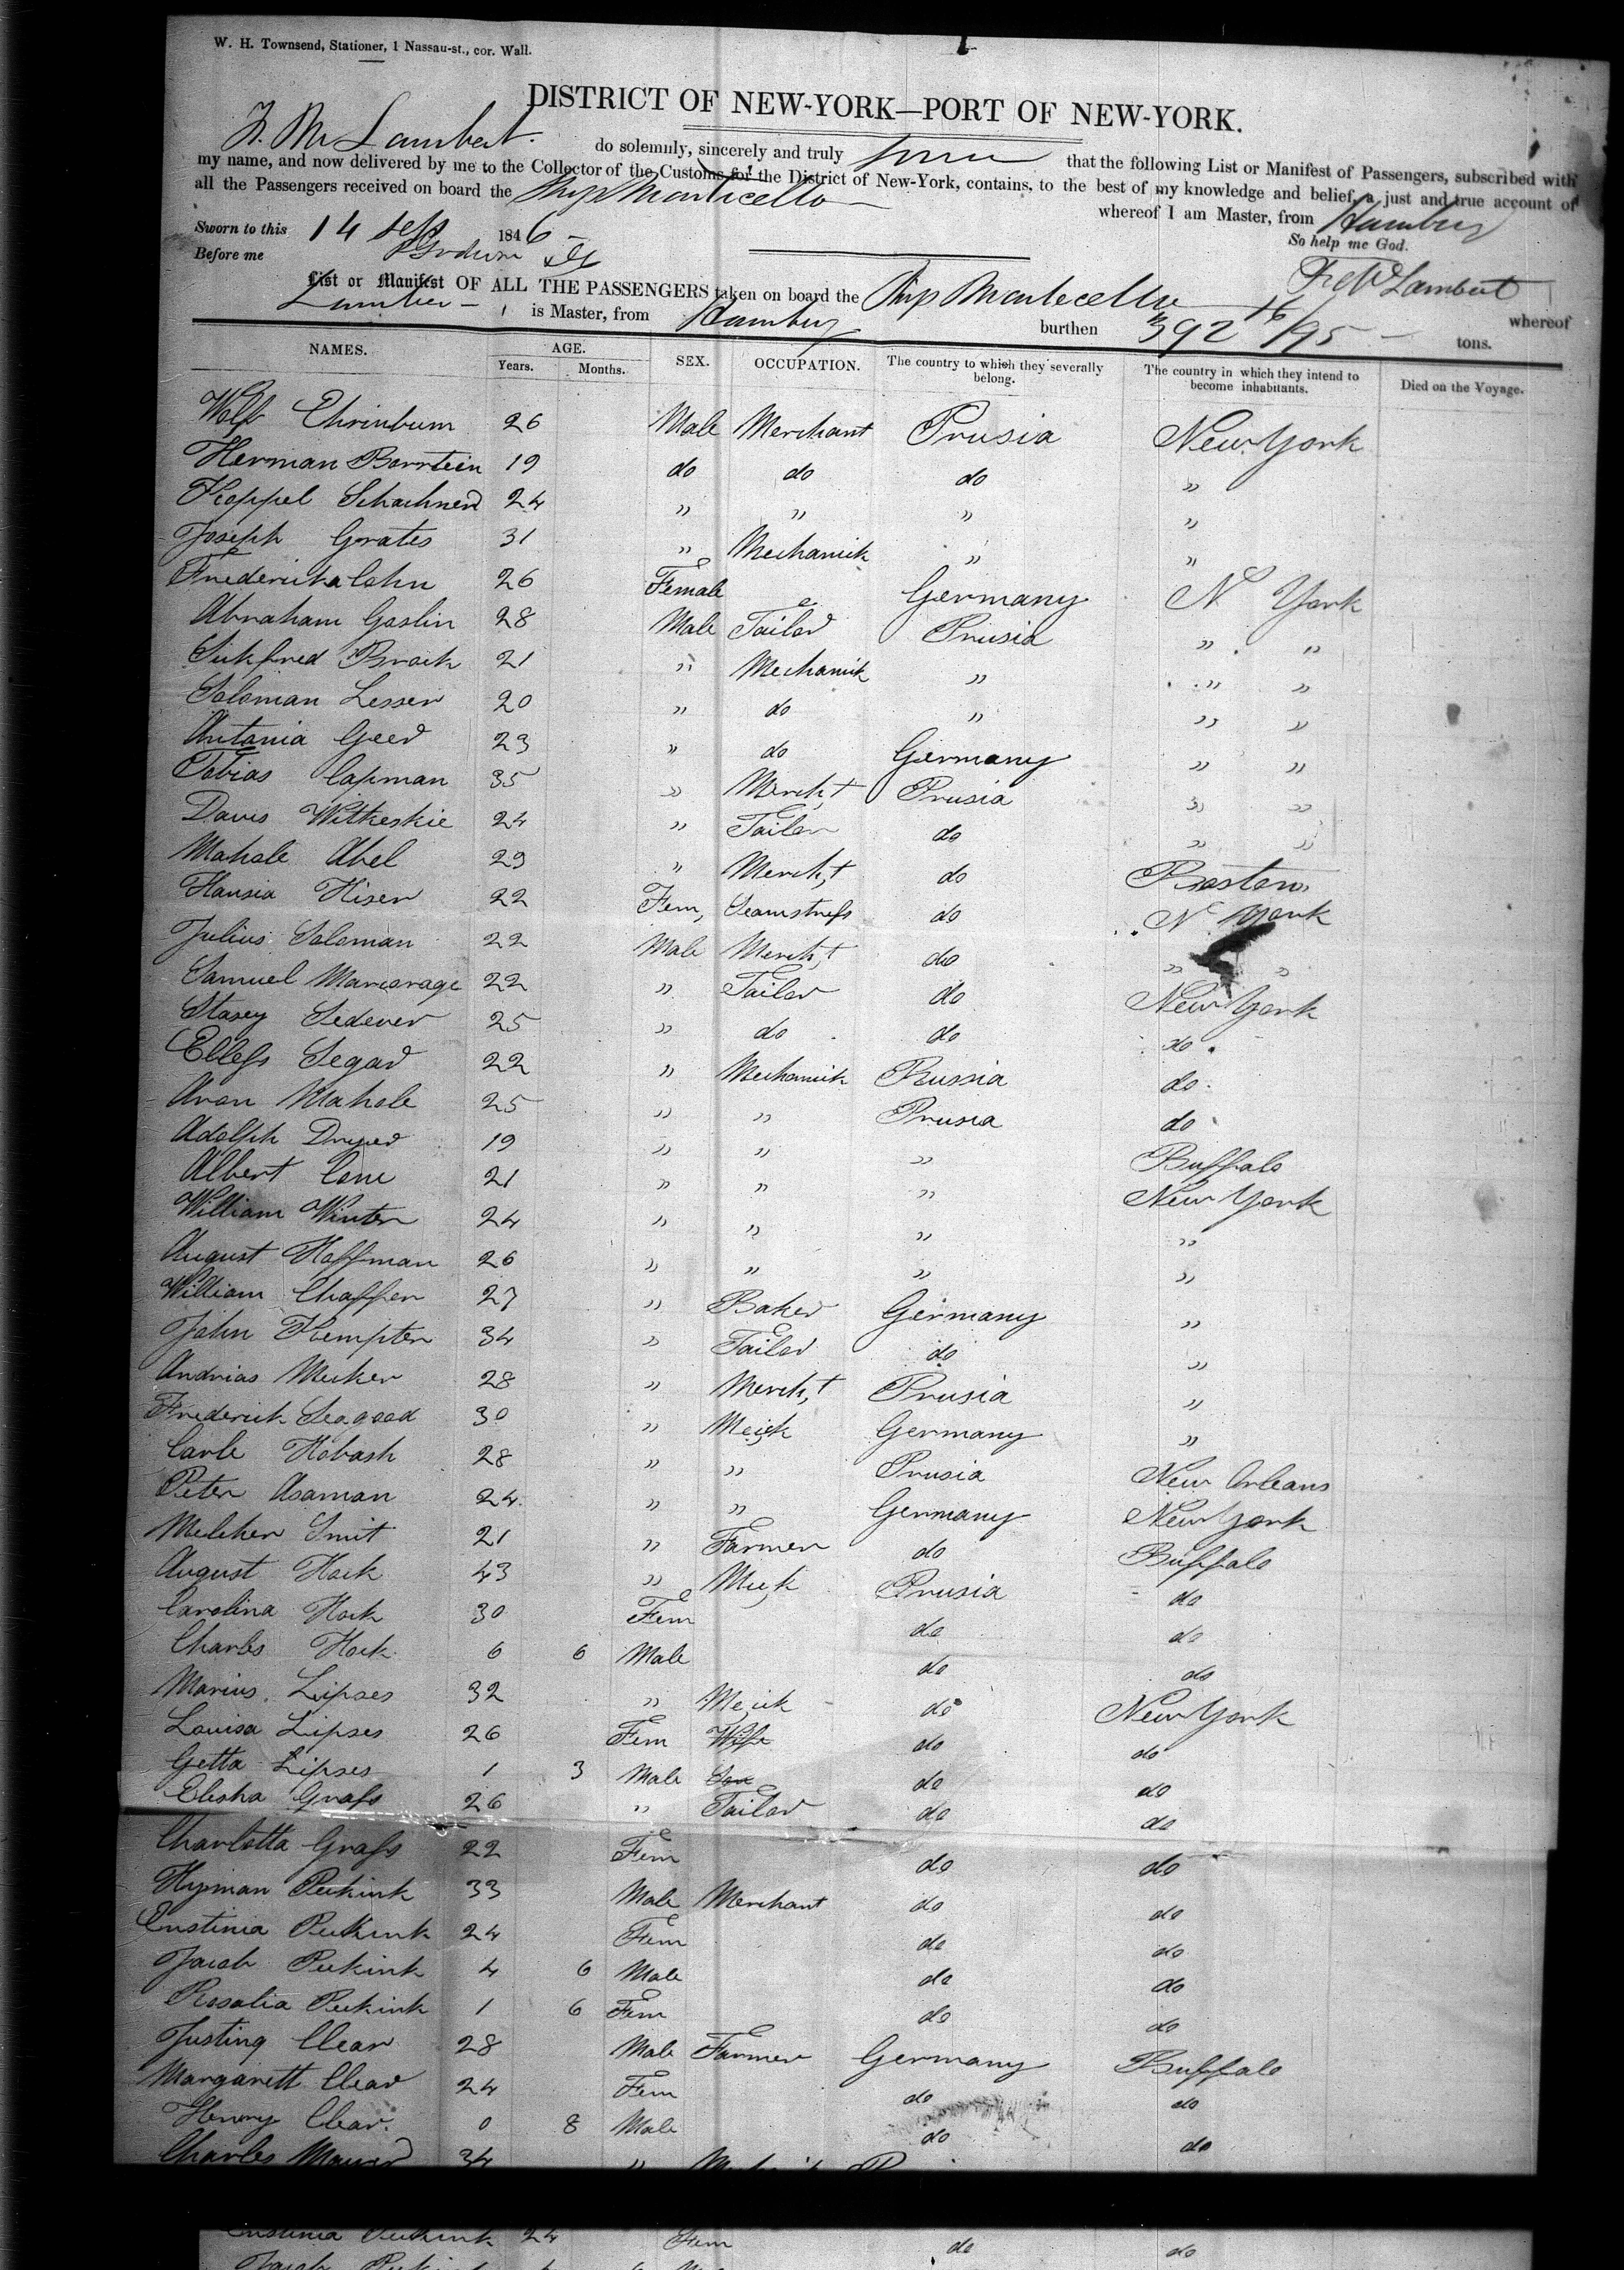 W. H. Townsend, Stationer, 1 Nassau-st., cor. Wall.
DISTRICT OF NEW-YORK—PORT OF NEW-YORK.
Lambert do solemnly, sincerely and truly that the following List or Manifest of Passengers, subscribed with
my name, and now delivered by me to the Collector of the Customs for the District of New-York, contains, to the best of my knowledge and belief, a just and true account of
all the Passengers received on board the Ship Monticello whereof I am Master, from Hamburg
Sworn to this 14 Sept 1846 So help me God.
Before me
Lambert
List or Manifest OF ALL THE PASSENGERS taken on board the Ship Montecello whereof
is Master, from Hamburg burthen 392 16/95 tons.
NAMES. AGE. SEX. OCCUPATION. The country to which they severally belong. The country in which they intend to become inhabitants. Died on the Voyage.
Years. Months.
Wolf Chrinbum 26 Male Merchant Prusia New York
Herman Borntein 19 do do do "
Koppel 24 " " " "
Joseph Grates 31 " Mechanick " "
Fredericka Cohn 26 Female Germany N York
Abraham Goslin 28 Male Tailor Prusia " "
Sickfred Brock 21 " Mechanick " " "
Soloman Lesser 20 " do " " "
Antania Geed 23 " do Germany " "
Tobias Capman 35 " Mercht Prusia " "
Davis Witkeskie 24 " Tailor do " "
Mahale Abel 23 " Mercht do Boston
Hansia Hiser 22 Fem, Seamstress do N York
Julius Soloman 22 Male Mercht do " "
Samuel 22 " Tailor do New York
Stasey Sedever 25 " do do do
Elless Segad 22 " Mechanick Russia do
Aron Mahole 25 " " Prusia do
Adolph 19 " " " Buffalo
Albert Cone 21 " " " New York
William Winter 24 " " " "
August Hoffman 26 " " " "
William Chaffer 27 " Baker Germany "
John Kempter 34 " Tailor do "
Andrias Mecker 28 " Mercht Prusia "
Frederick Seagood 30 " Meck Germany "
Carle Hobash 28 " " Prusia New Orleans
Peter Asaman 24 " " Germany New York
Melcher Smit 21 " Farmer do Buffalo
August Hock 43 " Meck Prusia do
Carolina Hock 30 Fem do do
Charles Hock 6 6 Male do do
Marius Lipses 32 " Meck do New York
Louisa Lipses 26 Fem Wife do do
Getta Lipses 1 3 Male Son do do
Elisha Grass 26 " Tailor do do
Charlotta Grass 22 Fem do do
Hyman Peckink 33 Male Merchant do do
Enstinia Peckink 24 Fem do do
Jacob Peckink 4 6 Male do do
Rosalia Peckink 1 6 Fem do do
Justing Clear 28 Male Farmer Germany Buffalo
Margarett Clear 24 Fem do do
Henry Clear 0 8 Male do do
Charles 34 "
Enstinia Peckink 24 Fem do do